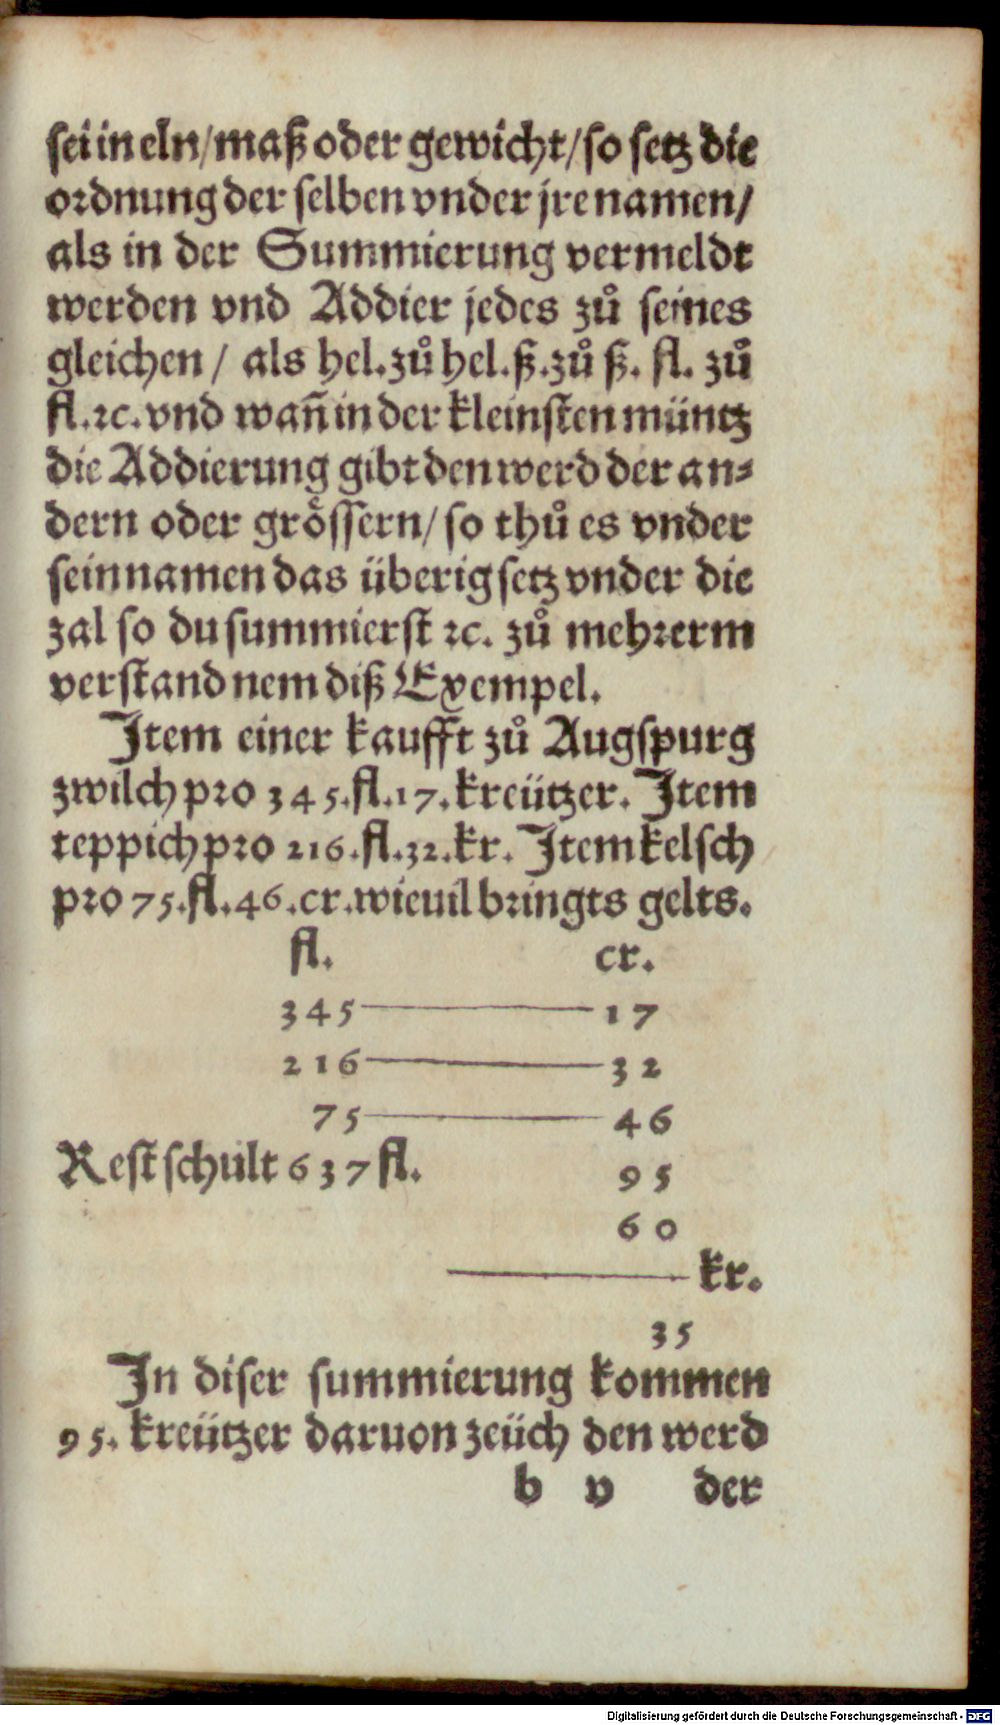 sei in eln/maß oder gewicht/so setz die
ordnung der selben vnder jre namen/
als in der Summierung vermeldt
werden vnd Addier jedes zů seines
gleichen / als hel. zů hel. ß. zů ß. fl. zů
fl. ꝛc. vnd wañ in der kleinsten müntz
die Addierung gibt den werd der an⸗
dern oder grössern/so thů es vnder
sein namen das überig setz vnder die
zal so du summierst ꝛc. zů mehrerm
verstand nem diß Exempel.
Item einer kaufft zů Augspurg
zwilch pro 345. fl. 17. kreützer. Item
teppich pro 216. fl. 32. kr. Item kelsch
pro 75. fl. 46. cr. wieuil bringts gelts.
fl. cr.
345 — 17
216 — 32
75 — 46
Rest schult 637 fl. 95
60
— kr.
35
In diser summierung kommen
95. kreützer daruon zeüch den werd
b v der
Digitalisierung gefördert durch die Deutsche Forschungsgemeinschaft - DFG